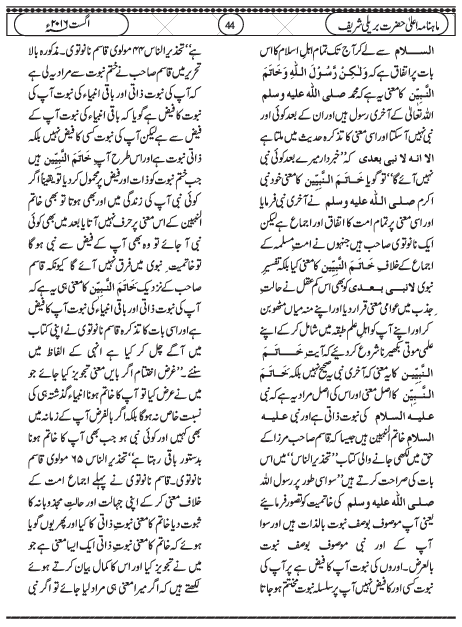 ماہنامہ اعلیٰ حضرت بریلی شریف
44
اگست ۲۰۱۶ء
السلام سے لے کر آج تک تمام اہل اسلام کا اس
بات پر اتفاق ہے کہ وَلٰـکِنْ رَّسُوْلَ اللّٰہِ وَخَاتَمَ
النَّبِیّٖن کا معنی یہ ہے کہ محمد صلی اللہ علیہ وسلم
اللہ تعالیٰ کے آخری رسول ہیں اور ان کے بعد کوئی اور
نبی نہیں آسکتا اور اسی معنی کا تذکرہ حدیث میں ملتا ہے
الا انہ لا نبی بعدی کہ ”خبردار میرے بعد کوئی نبی
نہیں آئے گا“ تو گویا خَاتَمَ النَّبِیّٖن کا معنی خود نبی
اکرم صلی اللہ علیہ وسلم نے آخری نبی فرمایا
اور اسی معنی پر تمام امت کا اتفاق اور اجماع ہے لیکن
ایک نانوتوی صاحب ہیں جنہوں نے امت مسلمہ کے
اجماع کے خلاف خَاتَمَ النَّبِیّٖن کا معنی کیا بلکہ تفسیر
نبوی لانبی بعدی کو بھی اس کم عقل نے حالتِ
جذب میں عوامی معنی قرار دیا اور اپنے منہ میاں مٹھو بن
کر اور اپنے آپ کو اہل علم طبقہ میں شامل کر کے اپنے
علمی موتی بکھیرنا شروع کر دیے کہ آیت خَاتَمَ
النَّبِیّٖن کا یہ معنی کہ آخری نبی یہ صحیح نہیں بلکہ خَاتَمَ
النَّبِیّٖن کا اصل معنی اور اس کی اصل مراد یہ ہے کہ نبی
علیہ السلام کی نبوت ذاتی ہے اور نبی علیہ
السلام خاتم النبیین ہیں جیسا کہ قاسم صاحب مرزا کے
حق میں لکھی جانے والی کتاب ”تحذیر الناس“ میں اس
بات کی صراحت کرتے ہیں ”سو اسی طور پر رسول اللہ
صلی اللہ علیہ وسلم کی خاتمیت کو تصور فرمائیے
یعنی آپ موصوف بوصف نبوت بالذات ہیں اور سوا
آپ کے اور نبی موصوف بوصف نبوت
بالعرض۔ اوروں کی نبوت آپ کا فیض ہے پر آپ کی
نبوت کسی اور کا فیض نہیں آپ پر سلسلہ نبوت مختتم ہو جاتا
ہے“ تحذیر الناس ۴۴ مولوی قاسم نانوتوی۔ مذکورہ بالا
تحریر میں قاسم صاحب نے ختم نبوت سے مراد یہ لی ہے
کہ آپ کی نبوت ذاتی اور باقی انبیاء کی نبوت آپ کی
نبوت کا فیض ہے گویا کہ باقی انبیاء کی نبوت آپ کے
فیض سے ہے لیکن آپ کی نبوت کسی کا فیض نہیں بلکہ
ذاتی نبوت ہے اور اس طرح آپ خَاتَمَ النَّبِیّٖن ہیں
جب ختم نبوت کو ذات اور فیض پر محمول کر دیا تو یقیناً اگر
کوئی نبی آپ کی زندگی میں اور بھی ہوتا تو بھی خاتم
النبیین کے اس معنی پر حرف نہیں آتا یا بعد میں بھی کوئی
نبی آ جائے تو وہ بھی آپ کے فیض سے نبی ہو گا
تو خاتمیت نبوی میں فرق نہیں آئے گا کیونکہ قاسم
صاحب کے نزدیک خَاتَمَ النَّبِیّٖن کا معنی ہی یہ ہے کہ
آپ کی نبوت ذاتی اور باقی انبیاء کی نبوت آپ کا فیض
ہے اور اسی بات کا تذکرہ قاسم نانوتوی نے اپنی کتاب
میں آگے چل کر کیا ہے انہی کے الفاظ میں
سنئے۔ ”غرض اختتام اگر بایں معنی تجویز کیا جائے جو
میں نے عرض کیا تو آپ کا خاتم ہونا انبیاء گذشتہ ہی کی
نسبت خاص نہ ہوگا بلکہ اگر بالفرض آپ کے زمانہ میں
بھی کہیں اور کوئی نبی ہو جب بھی آپ کا خاتم ہونا
بدستور باقی رہتا ہے“ تحذیر الناس ۶۵ مولوی قاسم
نانوتوی۔ قاسم نانوتوی نے پہلے اجماع امت کے
خلاف معنی کر کے اپنی جہالت اور حالتِ مجذوبانہ کا
ثبوت دیا خاتم کا معنی نبوتِ ذاتی کا کیا اور پھر یوں گویا
ہوئے کہ خاتم کا معنی نبوت ذاتی ایک ایسا معنی ہے جو
میں نے تجویز کیا ہے اور اس کا کمال بیان کرتے ہوئے
لکھتے ہیں کہ اگر میرا معنی ہی مراد لیا جائے تو اگر نبی